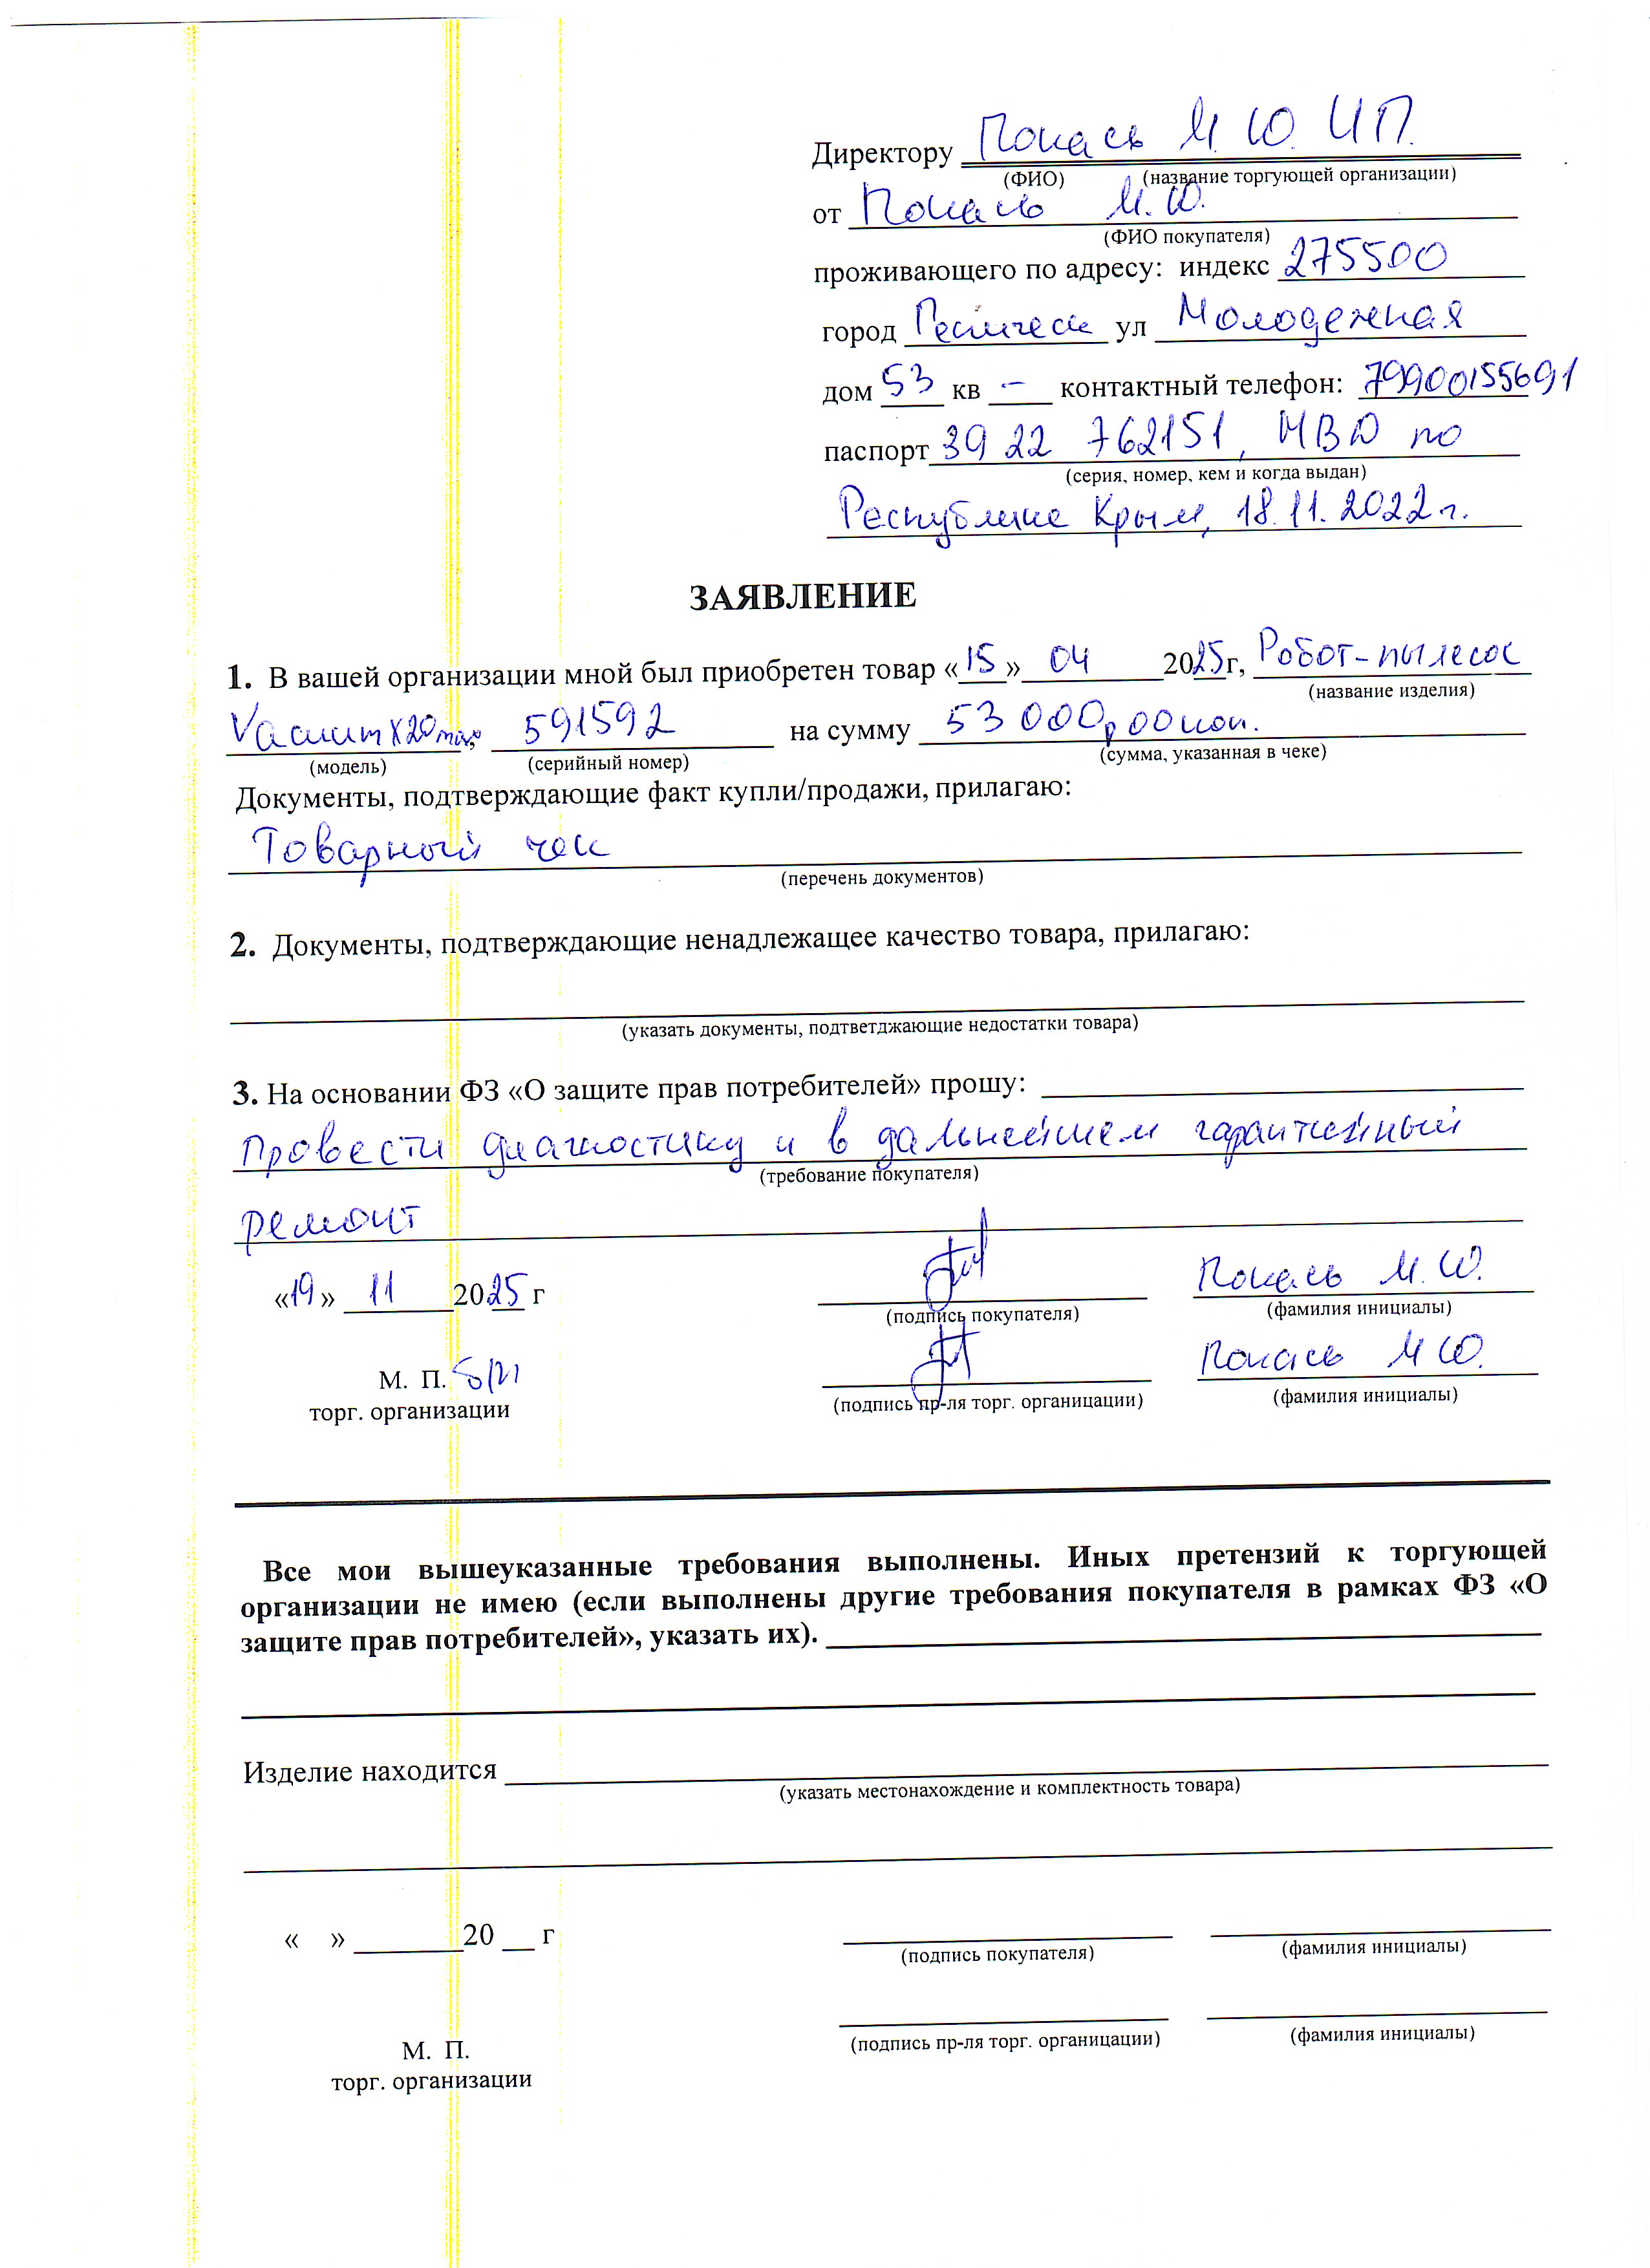 Директору Покась М.Ю. ИП.
(ФИО) (название торгующей организации)
от Покась М.Ю.
(ФИО покупателя)
проживающего по адресу: индекс 275500
город Геническ ул Молодежная
дом 53 кв — контактный телефон: 79900155691
паспорт 39 22 762151, МВД по
(серия, номер, кем и когда выдан)
Республике Крым, 18.11.2022г.
ЗАЯВЛЕНИЕ
1. В вашей организации мной был приобретен товар «15» 04 2025г, Робот-пылесос
(название изделия)
Vacuum X20 max, 591592 на сумму 53 000р 00коп.
(модель) (серийный номер) (сумма, указанная в чеке)
Документы, подтверждающие факт купли/продажи, прилагаю:
Товарный чек
(перечень документов)
2. Документы, подтверждающие ненадлежащее качество товара, прилагаю:
(указать документы, подтветджающие недостатки товара)
3. На основании ФЗ «О защите прав потребителей» прошу:
провести диагностику и в дальнейшем гарантийный
(требование покупателя)
ремонт
«19» 11 2025 г Покась М.Ю.
(подпись покупателя) (фамилия инициалы)
М. П. б/п Покась М Ю.
торг. организации (подпись пр-ля торг. органицации) (фамилия инициалы)
Все мои вышеуказанные требования выполнены. Иных претензий к торгующей
организации не имею (если выполнены другие требования покупателя в рамках ФЗ «О
защите прав потребителей», указать их).
Изделие находится
(указать местонахождение и комплектность товара)
« » 20 г
(подпись покупателя) (фамилия инициалы)
М. П.
(подпись пр-ля торг. органицации) (фамилия инициалы)
торг. организации